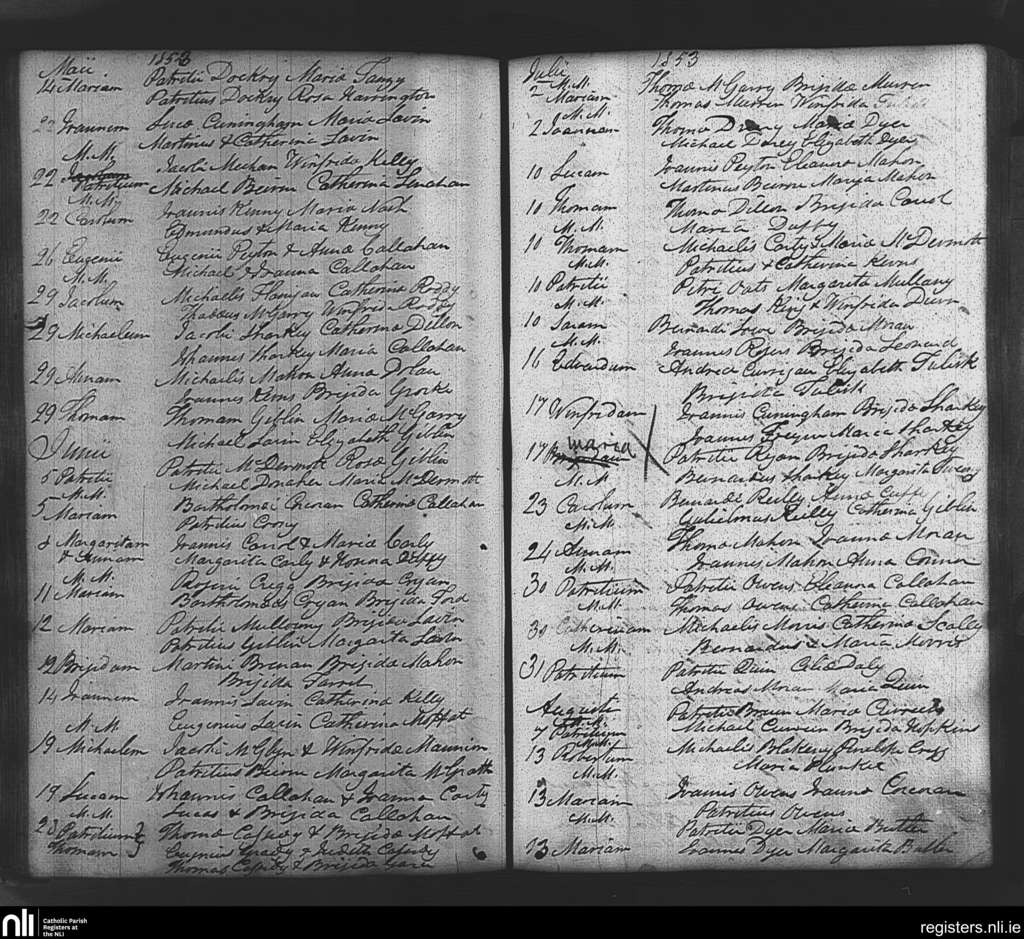 Maii 1853
14 Mariam Patritii Dockry Maria Tangy
Patritius Dockry Rosa Harrington
22 Joannem Luca Cuningham Maria Lavin
M.M. Martinus & Catherina Lavin
22 Patritium Jacobi Meehan Winfrida Kelly
M.M. Michael Beirn Catherina Lenahan
22 Joannis Kenny Maria Nash
Edmundus & Maria Kenny
26 Eugenii Eugenii Peyton & Anna Callahan
M.M. Michael & Joanna Callahan
29 Jacobum Michaelis Flanigan Catherina Roddy
Thaddeus McGarry Winfrida Roddy
29 Michaelem Jacobi Sharkey Catherina Dillon
Johannes Sharkey Maria Callahan
29 Annam Michaelis Mahon Anna Dolan
Joannes Kerns Brigida
29 Thomam Thomam Giblin Maria McGarry
Michael Lavin Elizabeth Giblin
Junii
5 Patritii Patritii McDermott Rosa Giblin
M.M. Michael Donaher Maria McDermott
5 Mariam Bartholomai Corcoran Catherina Callahan
Patritius Coony
8 Margaritam Joannis Carrol & Maria Carly
& Annam Margarita Carly & Honora
M.M.
11 Mariam Rogerii Cregg Brigida Cryan
Bartholomeus Cryan Brigida Ford
12 Mariam Patritii Mullooney Brigida Lavin
Patritius Giblin Margarita Lavin
12 Brigidam Martini Brenan Brigida Mahon
Brigida Farrel
14 Joannem Joannis Lavin Catherina Kelly
M.M. Eugenius Lavin Catherina Moffat
19 Michaelem Jacobi McGlyn & Winfrida Mannion
Patritius Beirn Margarita McGrath
19 Lucam Johannis Callahan & Joanna Carty
M.M. Lucas & Brigida Callahan
23 Patritium } Thoma Casudy & Brigida Moffat
Thomam } Eugenius Grady & Judita Casudy
Thomas Casudy & Brigida
Julii 1853
2 M.M. Mariam Thoma McGarry Brigida Murren
Thomas Murren Winfrida
M.M.
2 Joannam Thoma Maria Dyer
Michael Elizabeth Dyer
10 Lucam Joannis Peyton Eleanna Mahon
Martinus Beirne Maria Mahon
10 Thomam Thoma Dillon Brigida Carrol
M.M. Maria Duffy
10 Thomam Michaelis Carly & Maria McDermott
M.M. Patritius & Catherina Kerns
10 Patritii Petri Oats Margarita Mullany
M.M. Thomas King & Winfrida
10 Saram Bernardi Brigida Moran
M.M. Joannes Brigida Leonard
16 Edvardum Andrea Corrigan Elizabeth Tulisk
Brigida Tulisk
17 Winfridam Joannis Cuningham Brigida Sharkey
Joannes Maria Sharkey
17 Maria Patritii Ryan Brigida Sharkey
M.M. Bernardus Sharkey Margarita
23 Carolum Bernardi Reilly Anna
M.M. Gulielmus Reilly Catherina Giblin
24 Annam Thoma Mahon Joanna Moran
M.M. Joannis Mahon Anna Connor
30 Patritium Patritii Owens Eleanna Callahan
M.M. Thomas Owens Catherina Callahan
30 Catherinam Michaelis Morris Catherina Scally
M.M. Bernardus & Maria Morris
31 Patritium Patritii Quin Celia Daly
Andreas Moran Maria Quin
Augusti
M.M.
7 Patritium Patritii Maria
M.M. Michael Brigida Hopkins
13 Robertum Michaelis Blakeny Penelope
M.M. Maria Plunket
13 Mariam Joannis Owens Joanna Corcoran
M.M. Patritius Owens
13 Mariam Patritii Dyer Maria Butler
Joannes Dyer Margarita Butler
nli Catholic Parish
Registers at
the NLI
registers.nli.ie